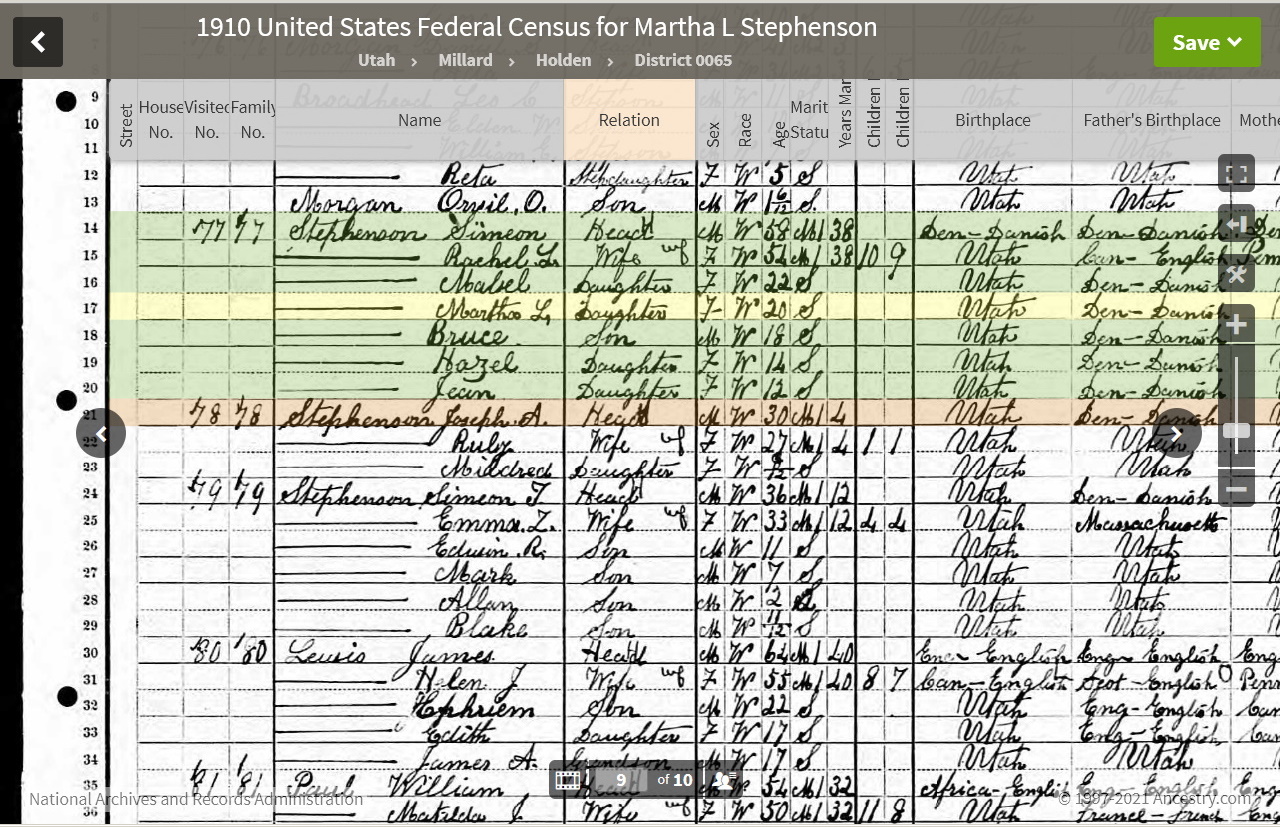 1910 United States Federal Census for Martha L Stephenson
Utah › Millard › Holden › District 0065
Save
Street House No. Visited No. Family No. Name Relation Sex Race Age Marit Statu Years Mar Children Children Birthplace Father's Birthplace Mothe
9 Broadhead Leo C Stepson
10 Elden W Stepson
11 William E Stepson
12 Reta Stepdaughter F W 5 S Utah Utah
13 Morgan Orvil, O. Son M W 1 6/12 S Utah Utah
14 77 77 Stephenson Simeon Head M W 58 M1 38 Den-Danish Den-Danish Den
15 Rachel L. Wife wf F W 54 M1 38 10 9 Utah Can-English Penn
16 Mabel Daughter F W 22 S Utah Den-Danish
17 Martha L, Daughter F W 20 S Utah Den-Danish
18 Bruce Son M W 18 S Utah Den-Danish
19 Hazel Daughter F W 14 S Utah Den-Danish
20 Jean Daughter F W 12 S Utah Den-Danish
21 78 78 Stephenson Joseph A. Head M W 30 M1 4 Utah Den-Danish
22 Ruby Wife wf F W 27 M1 4 1 1 Utah Utah
23 Mildred Daughter F W S Utah Utah
24 79 79 Stephenson Simeon T. Head M W 36 M1 12 Utah Den-Danish
25 Emma. Z. Wife wf F W 33 M1 12 4 4 Utah Massachusetts
26 Edwin. R. Son M W 11 S Utah Utah
27 Mark Son M W 7 S Utah Utah
28 Allan Son M W 2 S Utah Utah
29 Blake Son M W 11/12 S Utah Utah
30 80 80 Lewis James. Head M W 64 M1 40 Eng-English Eng-English Eng
31 Helen J Wife wf F W 55 M1 40 8 7 Can-English Scot-English Penn
32 Ephriem Son M W 22 S Utah Eng-English Can
33 Edith Daughter F W 17 S Utah Eng-English Can
34 James A. Grandson M W 17 S Utah Utah
35 81 81 Paul William Head M W 54 M1 32 Africa-English Eng-English Eng
36 Matilda J Wife wf F W 50 M1 32 11 8 Utah France-French Eng
9 of 10
National Archives and Records Administration
© 1997-2021 Ancestry.com